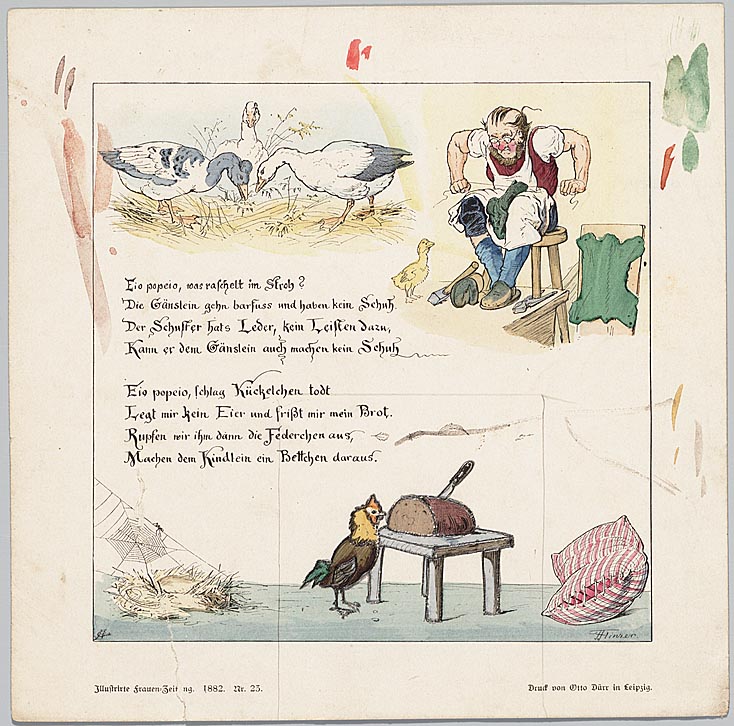 Eio popeio, was raschelt im Stroh?
Die Gänslein gehn barfuss und haben kein Schuh.
Der Schuster hats Leder, kein Leisten dazu,
Kann er dem Gänslein auch machen kein Schuh
Eio popeio, schlag Kückelchen todt
Legt mir kein Eier und frißt mir mein Brot.
Rupfen wir ihm dann die Federchen aus,
Machen dem Kindlein ein Bettchen daraus.
Illustrirte Frauen-Zeit ng. 1882. Nr. 23.
Druck von Otto Dürr in Leipzig.